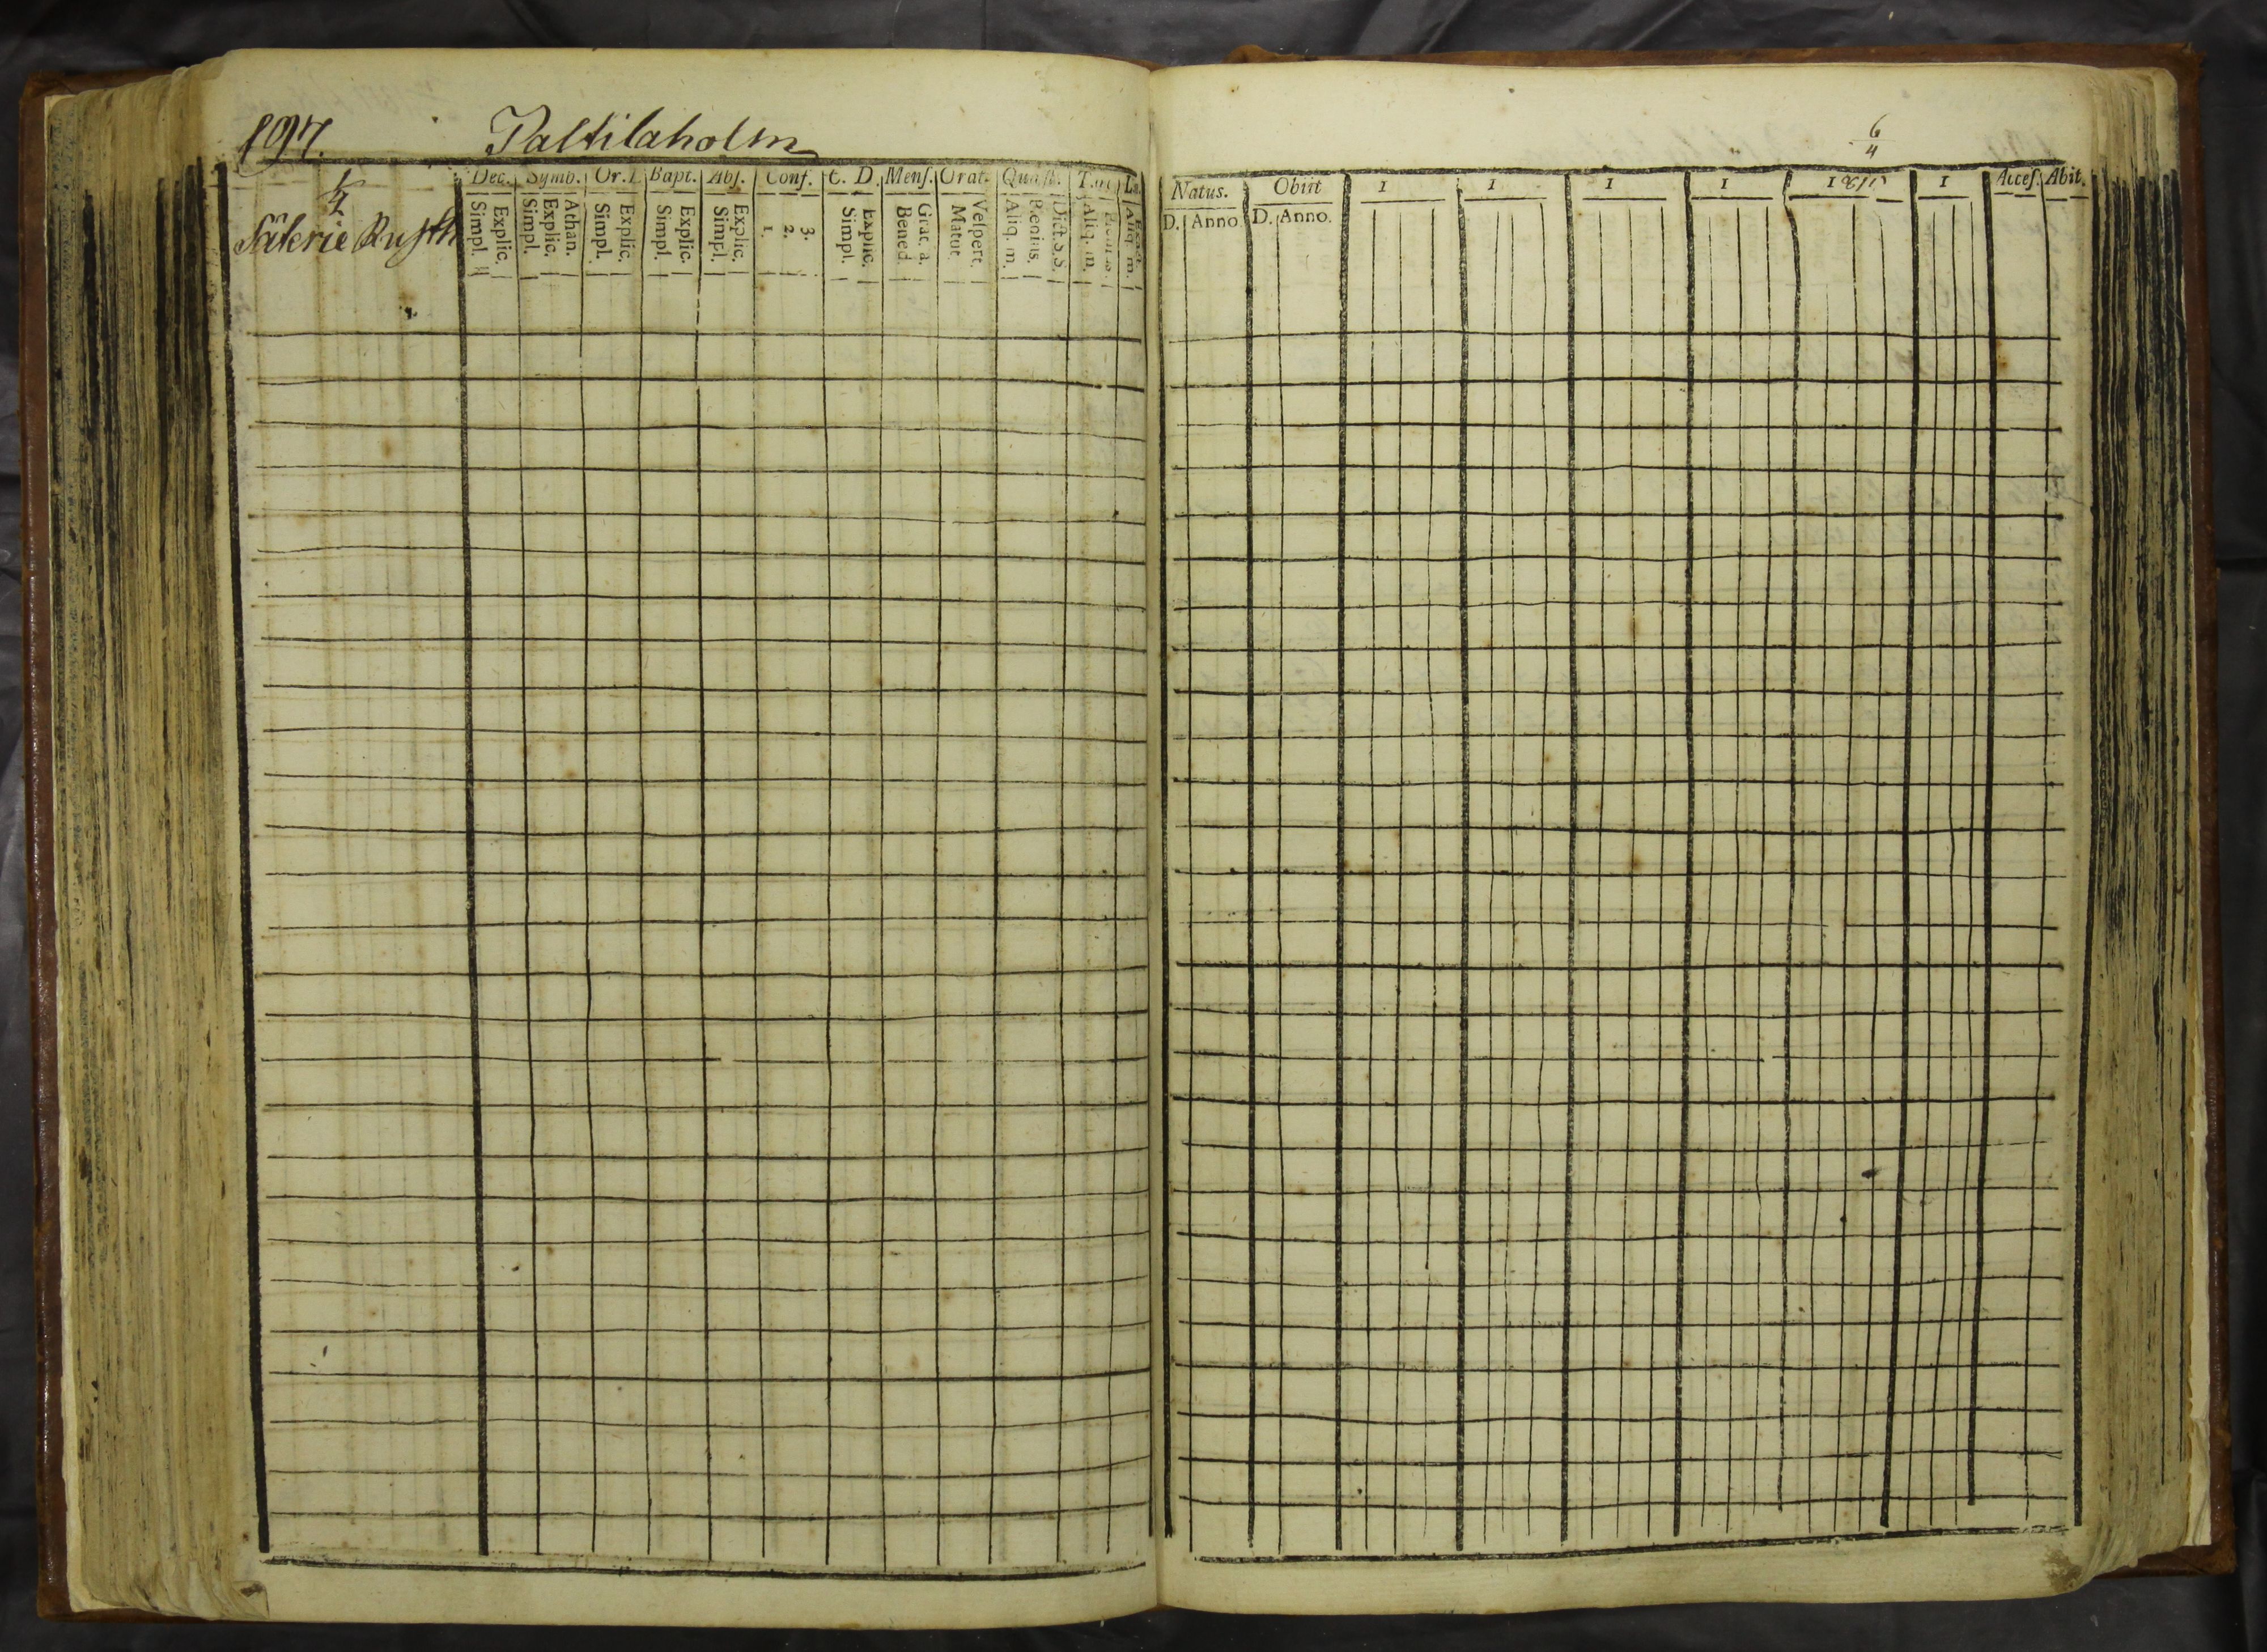 197. Paltilaholm
6/4
1/4
Säterie Rusth
Dec. Symb. Or. D. Bapt. Abs. Conf. C. D. Mens. Orat. Quæst. T.
Simpl. Explic. Simpl. Explic. Athan. Simpl. Explic. Simpl. Explic. Simpl. Explic. 1. 2. 3. Simpl. Explic. Bened. Grat. a. Matut. Vespert. Aliq. m. Dict. S.S. Aliq. m. Aliq. m.
Natus. Obiit 1 1 1 1 1810 1 Acces. Abit.
D. Anno D. Anno.